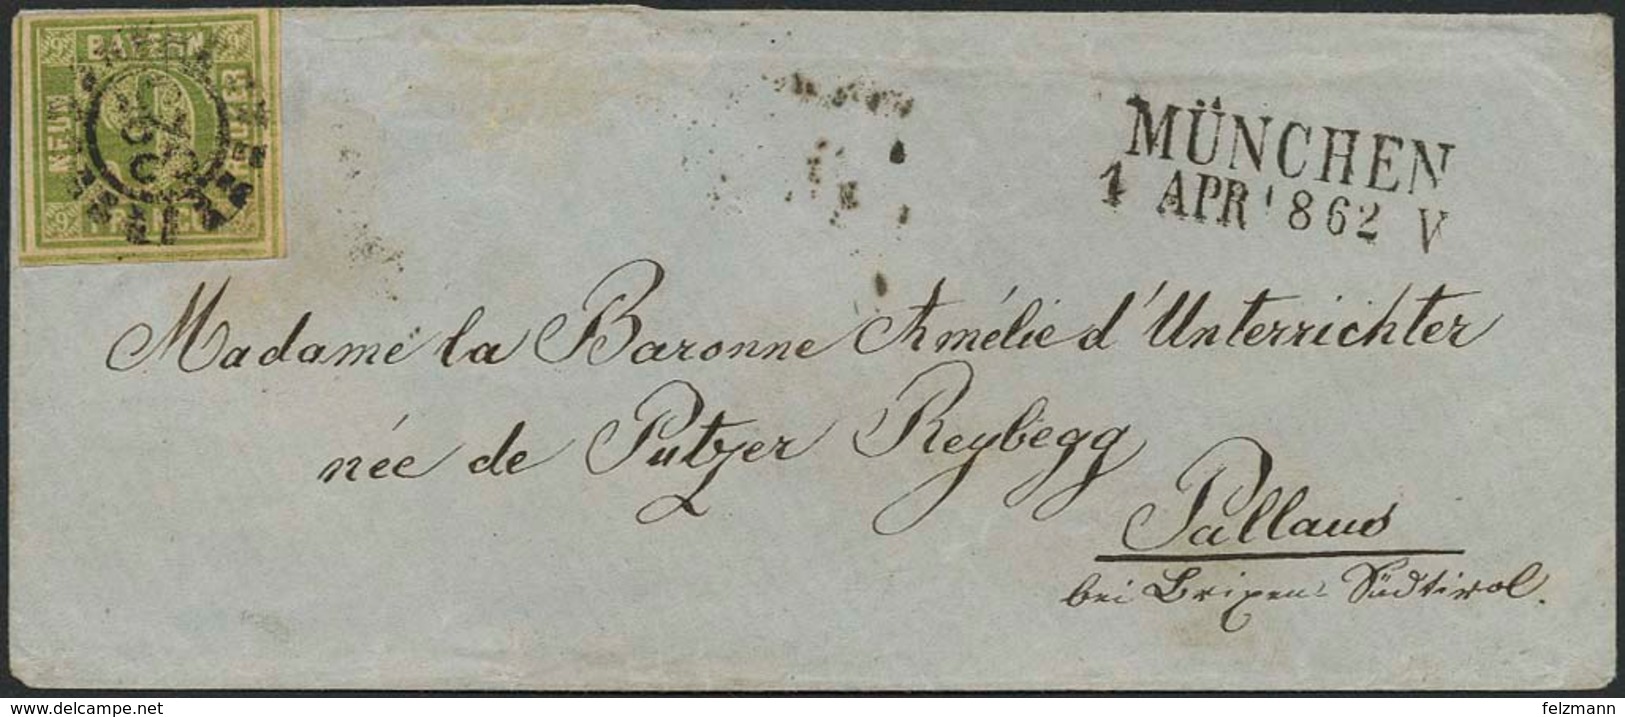 BAYERN
NEUN
MÜNCHEN
1 APR 1862 V
Madame la Baronne Amélie d'Unterrichter
née de Putzer Reybegg
Pallaus
bei Brixen Südtirol.
www.delcampe.net
felzmann